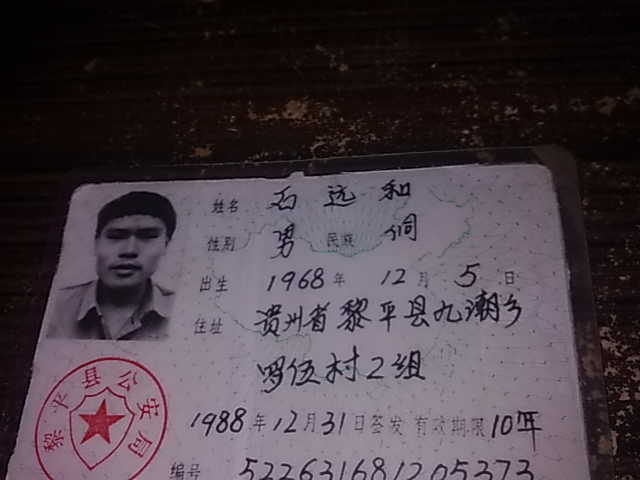 姓名 石远和
性别 男 民族 侗
出生 1968年 12月 5日
住址 贵州省黎平县九潮乡
罗伍村2组
1988年12月31日签发 有效期限10年
编号 522631681205373
黎平县公安局